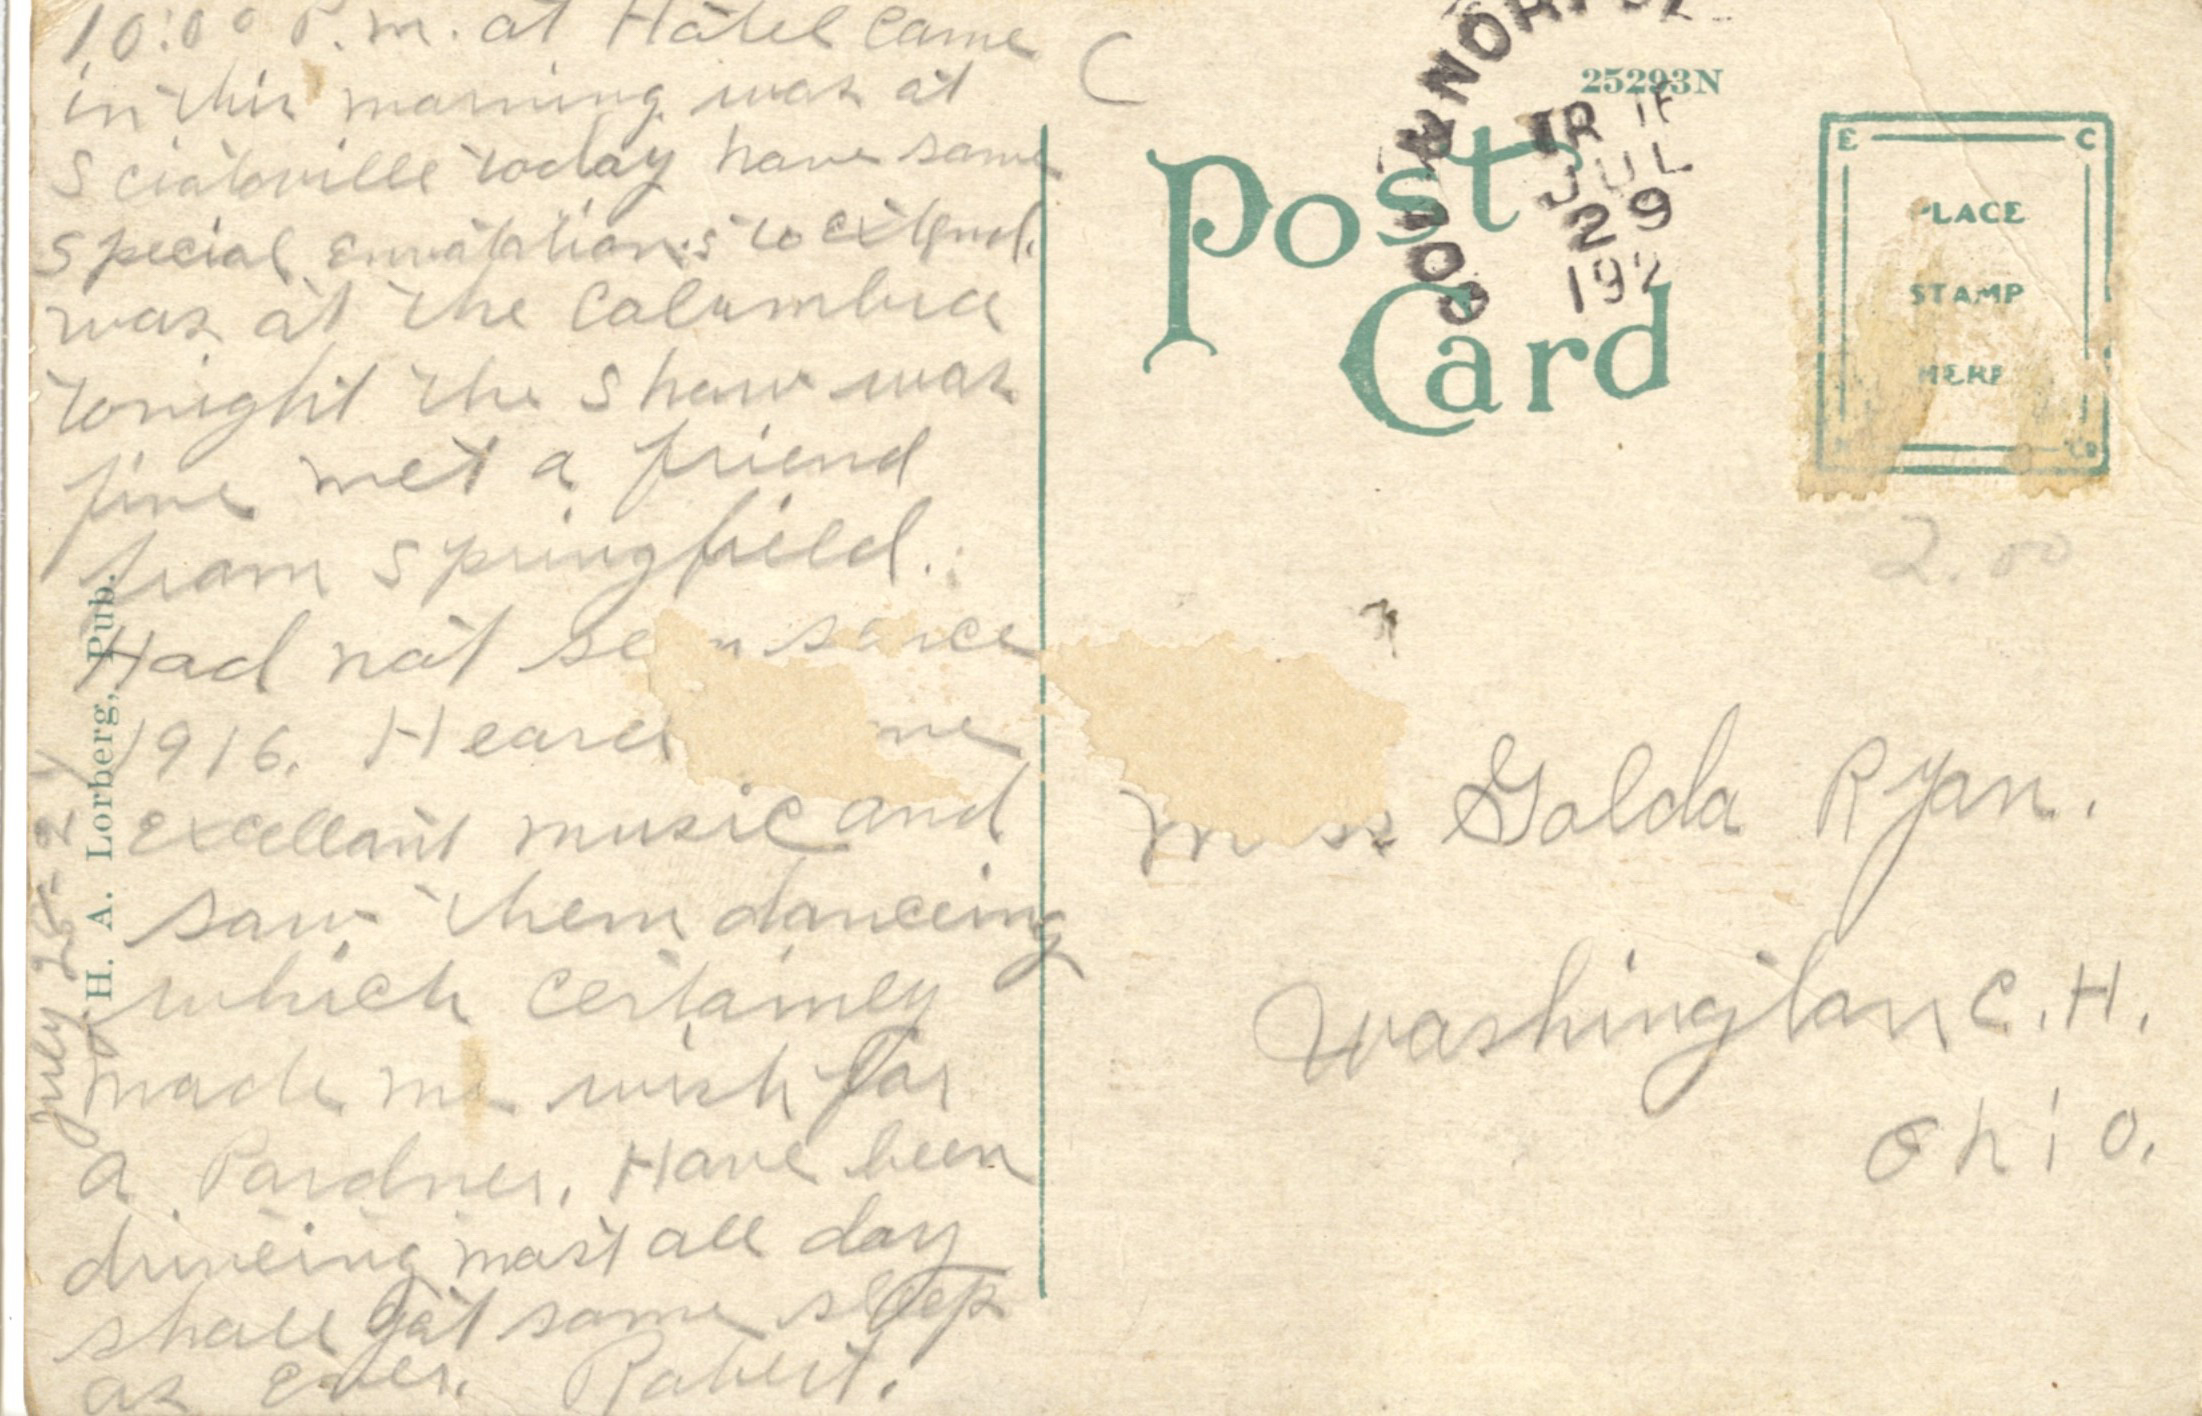 10:00 P.m. at Hotel came
in this morning was at
Sciotoville today have some
special envatations to extend.
was at the Columbia
tonight the show was
fine met a friend
from Springfield.
Had not seen since
1916. Heared
Excellant music and
saw them danceing
which certainly
made me wish for
a Pardner. Have been
driveing most all day
shall get some sleep
as Ever. Robert.
July 28-21
H. A. Lorberg, Pub.
C
25293N
JUL
29
192
Post
Card
E C
PLACE
STAMP
HERE
2.00
Miss Golda Ryan.
Washington C.H.
Ohio.